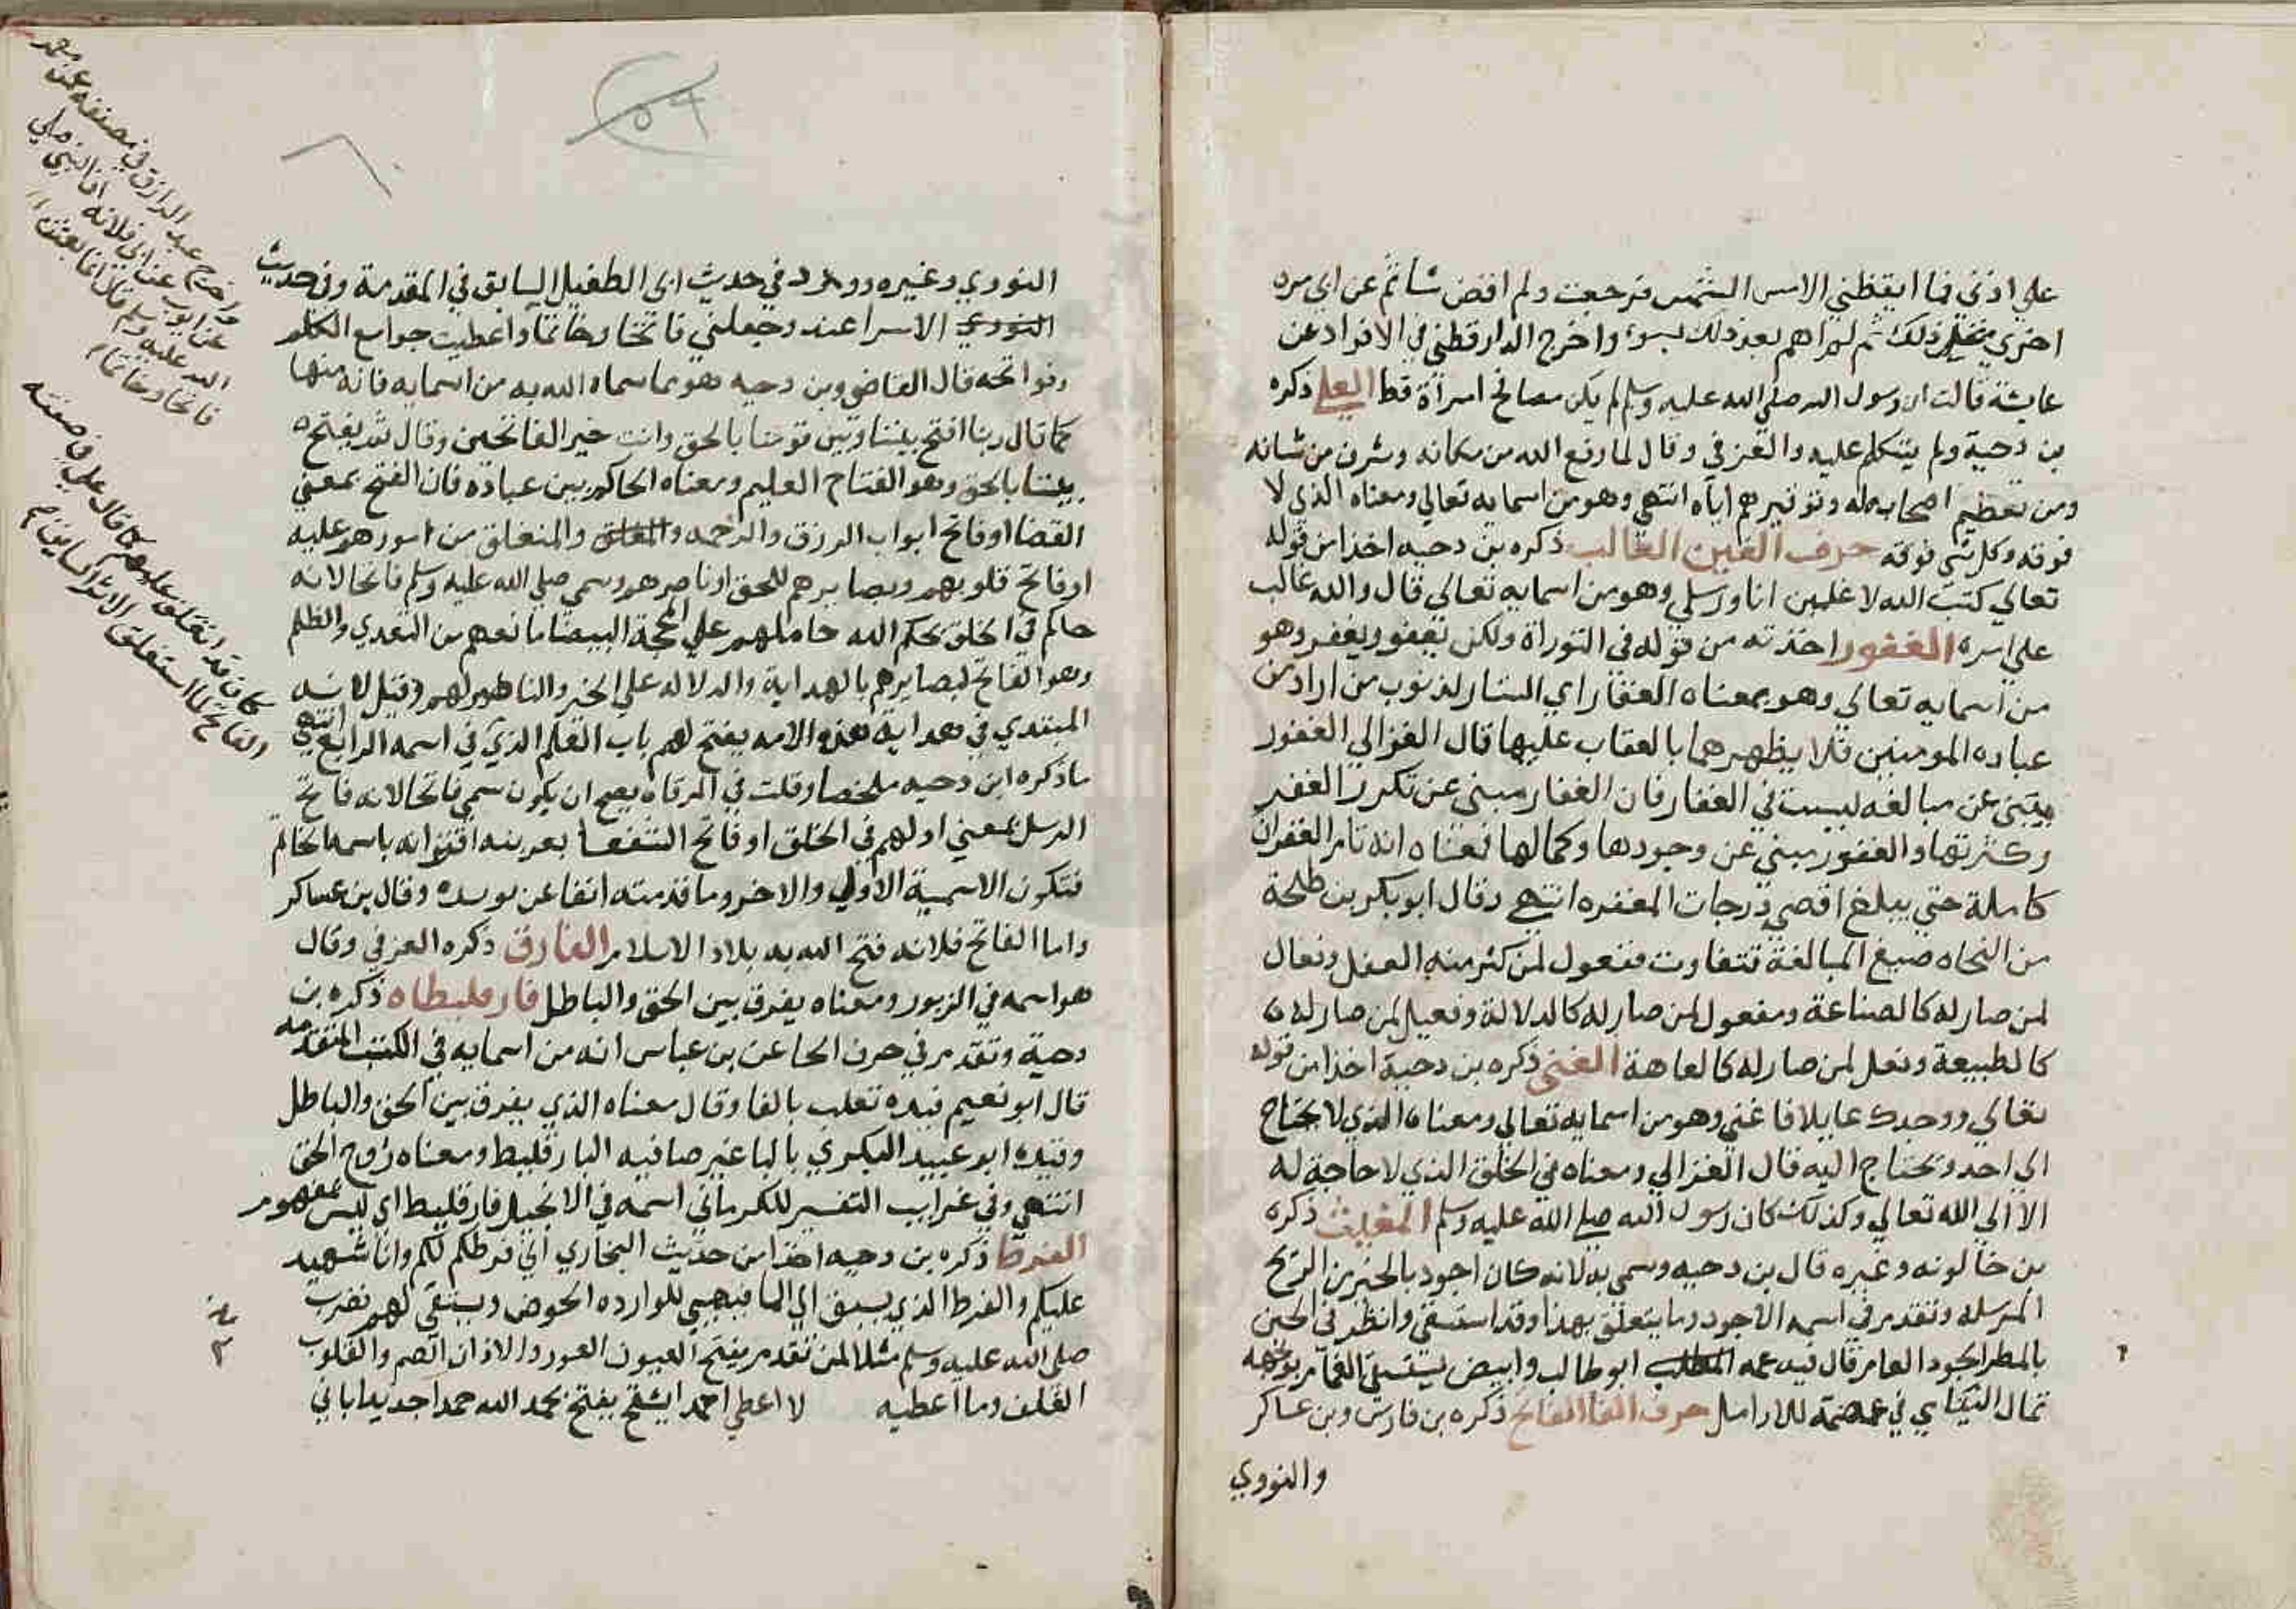 على اذني فما ايقظني الامس الشمس فرجعت ولم اقض شيا ثم عن اي مره
اخرى مثل ذلك ثم لم اهم بعد ذلك بسوء واخرج الدارقطني في الافراد عن
عايشة قالت ان رسول الله صلى الله عليه وسلم لم يكن مصافح امراة قط العلي ذكره
بن دحية ولم يتكلم عليه والعزفي وقال لما رفع الله من مكانه وشرف من شانه
ومن تعظيم اصحابه له وتوقيرهم اياه انتهى وهو من اسمايه تعالي ومعناه الذي لا
فوقه وكل شي فوقه حرف الغين الغالب ذكره بن دحيه اخذا من قوله
تعالي كتب الله لاغلبن انا ورسلي وهو من اسمايه تعالي قال والله غالب
علي امره الغفور اخذته من قوله في التوراة ولكن يعفو ويغفر وهو
من اسمايه تعالي وهو بمعناه الغفار اي الستار لذنوب من اراد من
عباده المومنين فلا يظهرهما بالعقاب عليها قال الغزالي الغفور
ينبي عن مبالغه ليست في الغفار فان الغفار مبني عن تكرر الغفر
وكثرتها والغفور مبني عن وجودها وكمالها فمعناه انه تام الغفران
كاملة حتى يبلغ اقصى درجات المغفره انتهى وقال ابو بكر بن طلحة
من النحاه صيغ المبالغة تتفاوت ففعول لمن كثر منه الفعل وفعال
لمن صار له كالصناعة ومفعول لمن صار له كالدلالة وفعيل لمن صار له
كالطبيعة وفعل لمن صار له كالعاهة الغني ذكره بن دحية اخذا من قوله
تعالي ووجدك عايلا فاغني وهو من اسمايه تعالي ومعناه الذي لا يحتاج
الي احد ويحتاج اليه قال الغزالي ومعناه في الخلق الذي لا حاجة له
الا الي الله تعالي وكذلك كان رسول الله صلى الله عليه وسلم المغيث ذكره
بن خالونه وغيره قال بن دحيه وسمي به لانه كان اجود بالخير من الريح
المرسله وتقدم في اسمه الاجود وما يتعلق بهذا وقد استسقي وانظر في الحين
بالمطر الجود العامر قال فيه عمه ابو طالب وابيض يستسقي الغمام بوجهه
ثمال اليتامي في عصمة للارامل حرف الفا الفاتح ذكره بن فارس وبن عساكر
والنووي
النووي وغيره وورد في حديث ابي الطفيل السابق في المقدمة وفي حديث
الاسرا عند وجعلني فاتحا وخاتما واعطيت جوامع الكلم
وفواتحه قال القاضي وبن دحيه هو مما سماه الله به من اسمايه فانه منها
كما قال ربنا افتح بيننا وبين قومنا بالحق وانت خير الفاتحين وقال ثم يفتح
بيننا بالحق وهو الفتاح العليم ومعناه الحاكم بين عباده فان الفتح بمعني
القضا او فاتح ابواب الرزق والرحمه والمنغلق من امورهم عليه
او فاتح قلوبهم وبصايرهم للحق او ناصرهم وسمي صلى الله عليه وسلم فاتحا لانه
حاكم في الخلق بحكم الله حاملهم على المحجة البيضا مانعهم من التعدي والظلم
وهو الفاتح لبصايرهم بالهداية والدلاله علي الخير والناصر لهم وقيل لانه
المبتدي في هداية هذه الامه يفتح لهم باب العلم الذي في اسمه الرابع انتهى
ما ذكره ابن دحيه ملخصا وقلت في المرقاه يصح ان يكون سمي فاتحا لانه فاتح
الرسل بمعني اولهم في الخلق او فاتح الشفعا بعرينه اقترانه باسمه الخاتم
فتكون الاسمية الاولي والاخر وما قدمته انفا عن يويده وقال بن عساكر
واما الفاتح فلانه فتح الله به بلاد الاسلام الفارق ذكره العزفي وقال
هو اسمه في الزبور ومعناه يفرق بين الحق والباطل فارقليطاه ذكره بن
دحية وتقدم في حرف الحا عن بن عباس انه من اسمايه في الكتب المتقدمه
قال ابو نعيم فيده تعلب بالفا وقال معناه الذي يفرق بين الحق والباطل
وقيده ابو عبيد البكري بالبا غير صافيه البارقليط ومعناه روح الحق
انتهى وفي غرايب التفسير للكرماني اسمه في الانجيل فارقليط اي ليس بمفهوم
الفرط ذكره بن دحيه اخذا من حديث البخاري اني فرطكم لكم وانا شهيد
عليكم والفرط الذي يسبق الي الما فيهيي للوارده الحوض ويستقي لهم فضرب
صلى الله عليه وسلم مثلا لمن تقدم يفتح العيون العور والاذان الصم والقلوب
الغلف وما اعطيه لا اعطي احمد ايشفح يفتح بحمد الله حمدا جديدا ياتي
واخرج عبد الرزاق في مصنفه عن معمر
عن ايوب عن ابي قلابه ان النبي صلى
الله عليه وسلم قال انما بعثت
فاتحا وخاتما
كان قد انغلق عليهم كما قال علي في صفته
الفاتح لما استغلق الاثر السابق